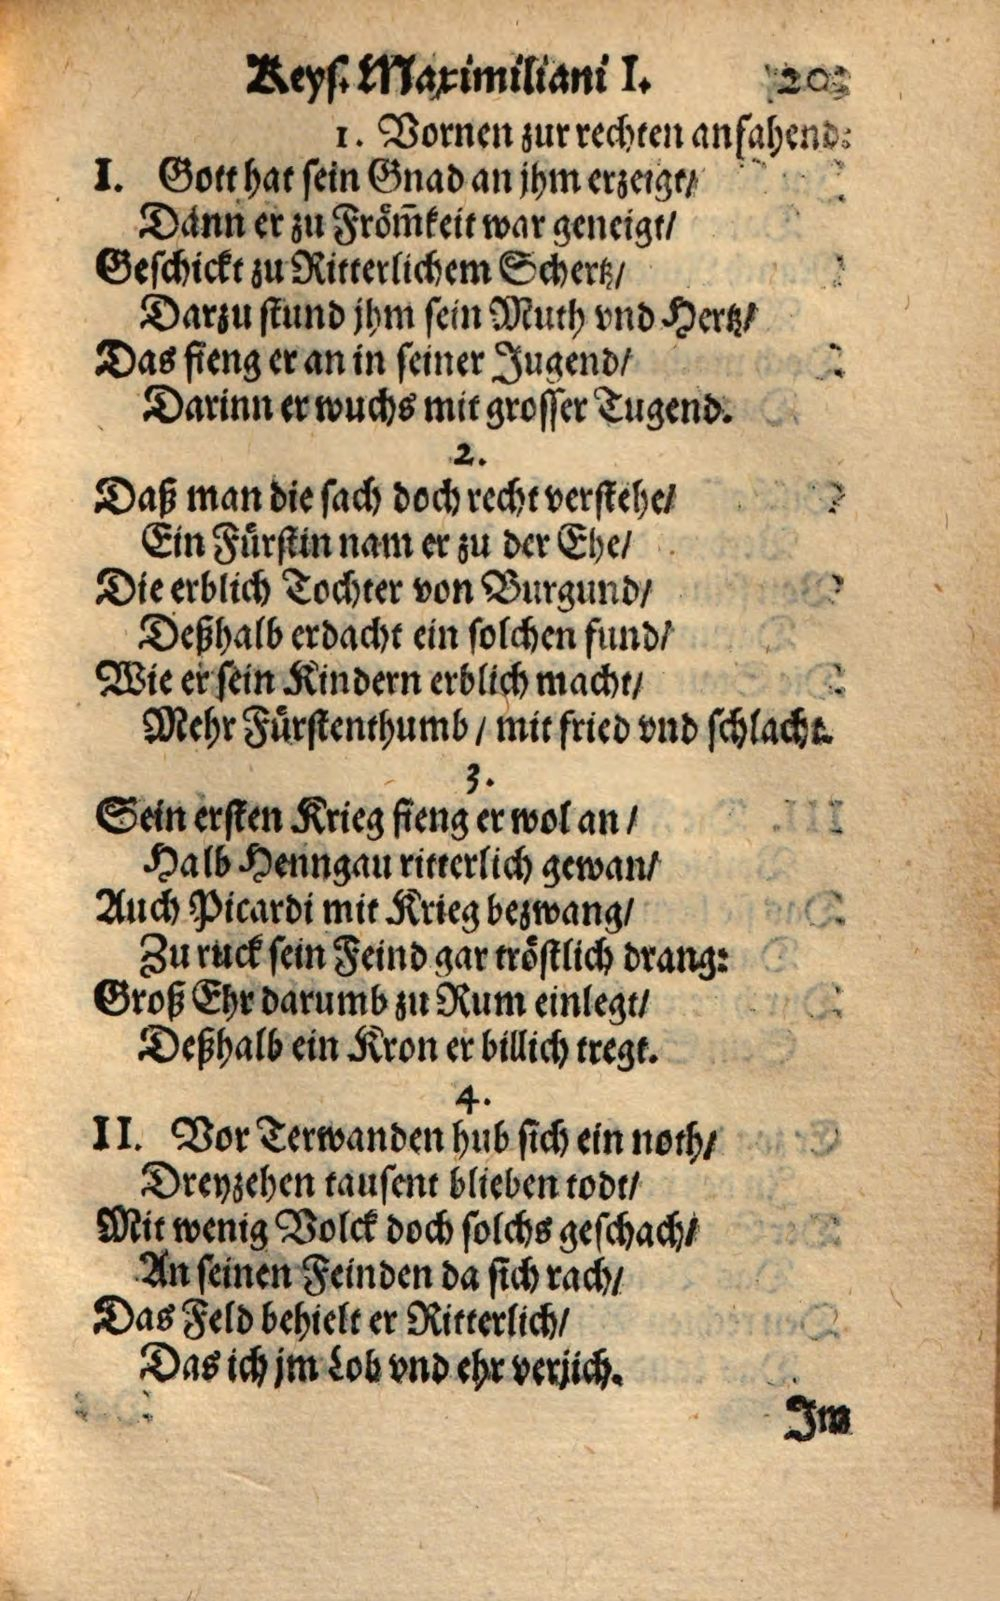 Keys. Maximiliani I. 203
1. Vornen zur rechten anfahend:
I. Gott hat sein Gnad an jhm erzeigt/
Dann er zu Fröm̃keit war geneigt/
Geschickt zu Ritterlichem Schertz/
Darzu stund jhm sein Muth vnd Hertz/
Das fieng er an in seiner Jugend/
Darinn er wuchs mit grosser Tugend.
2.
Daß man die sach doch recht verstehe/
Ein Fürstin nam er zu der Ehe/
Die erblich Tochter von Burgund/
Deßhalb erdacht ein solchen fund/
Wie er sein Kindern erblich macht/
Mehr Fürstenthumb / mit fried vnd schlacht.
3.
Sein ersten Krieg fieng er wol an /
Halb Henngau ritterlich gewan/
Auch Picardi mit Krieg bezwang/
Zu ruck sein Feind gar tröstlich drang:
Groß Ehr darumb zu Rum einlegt/
Deßhalb ein Kron er billich tregt.
4.
II. Vor Terwanden hub sich ein noth/
Dreyzehen tausent blieben todt/
Mit wenig Volck doch solchs geschach/
An seinen Feinden da sich rach/
Das Feld behielt er Ritterlich/
Das ich jm Lob vnd ehr verjich.
Jm